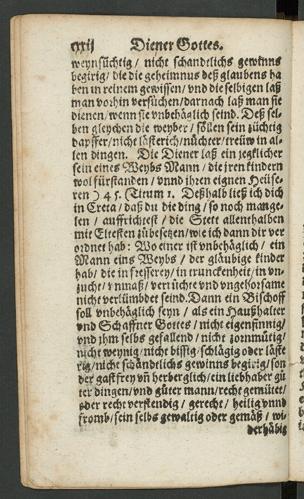 cxij Diener Gottes.
weynsüchtig / nicht schandtlichs gewinns
begirig / die die geheimnus deß glaubens ha
ben in reinem gewissen / vnd die selbigen laß
man vorhin versuchen / darnach laß man sie
dienen / wenn sie vnbehäglich seind. Deß sel-
ben gleychen die weyber / söllen sein züchtig
dapffer / nicht lästerich / nüchter / trewüw in al-
len dingen. Die Diener laß ein jegklicher
sein eines Weybs Mann / die jren kindern
wol fürstanden / vnnd jhren eignen Heüse-
ren) 45. (Titum 1. Deßhalb ließ ich dich
in Creta / daß du die ding / so noch mange-
len / auffrichtest / die Stett allenthalben
mit Eltesten zübesetzen / wie ich dann dir ver
ordnet hab: Wo einer ist vnbehäglich / ein
Mann eins Weybs / der gläubige kinder
hab / die in fresserey / in trunckenheit / in vn-
zucht / vnmaß / verrüchte vnd vngehorsame
nicht verlümbdet seind. Dann ein Bischoff
soll vnbehäglich seyn / als ein Haußhalter
vnd Schaffner Gottes / nicht eigensinnig /
vnd jhm selbs gefallend / nicht zornmütig /
nicht weynig / nicht bissig / schlägig oder läste
rig / nicht schändtlichs gewinns begirig / son
der gastfrey vñ herberglich / ein liebhaber gü
ter dingen / vnd güter mann / recht gemütet /
oder recht verstendig / gerecht / heilig vnnd
fromb / sein selbs gewaltig oder gemäß / wi-
derhäbig